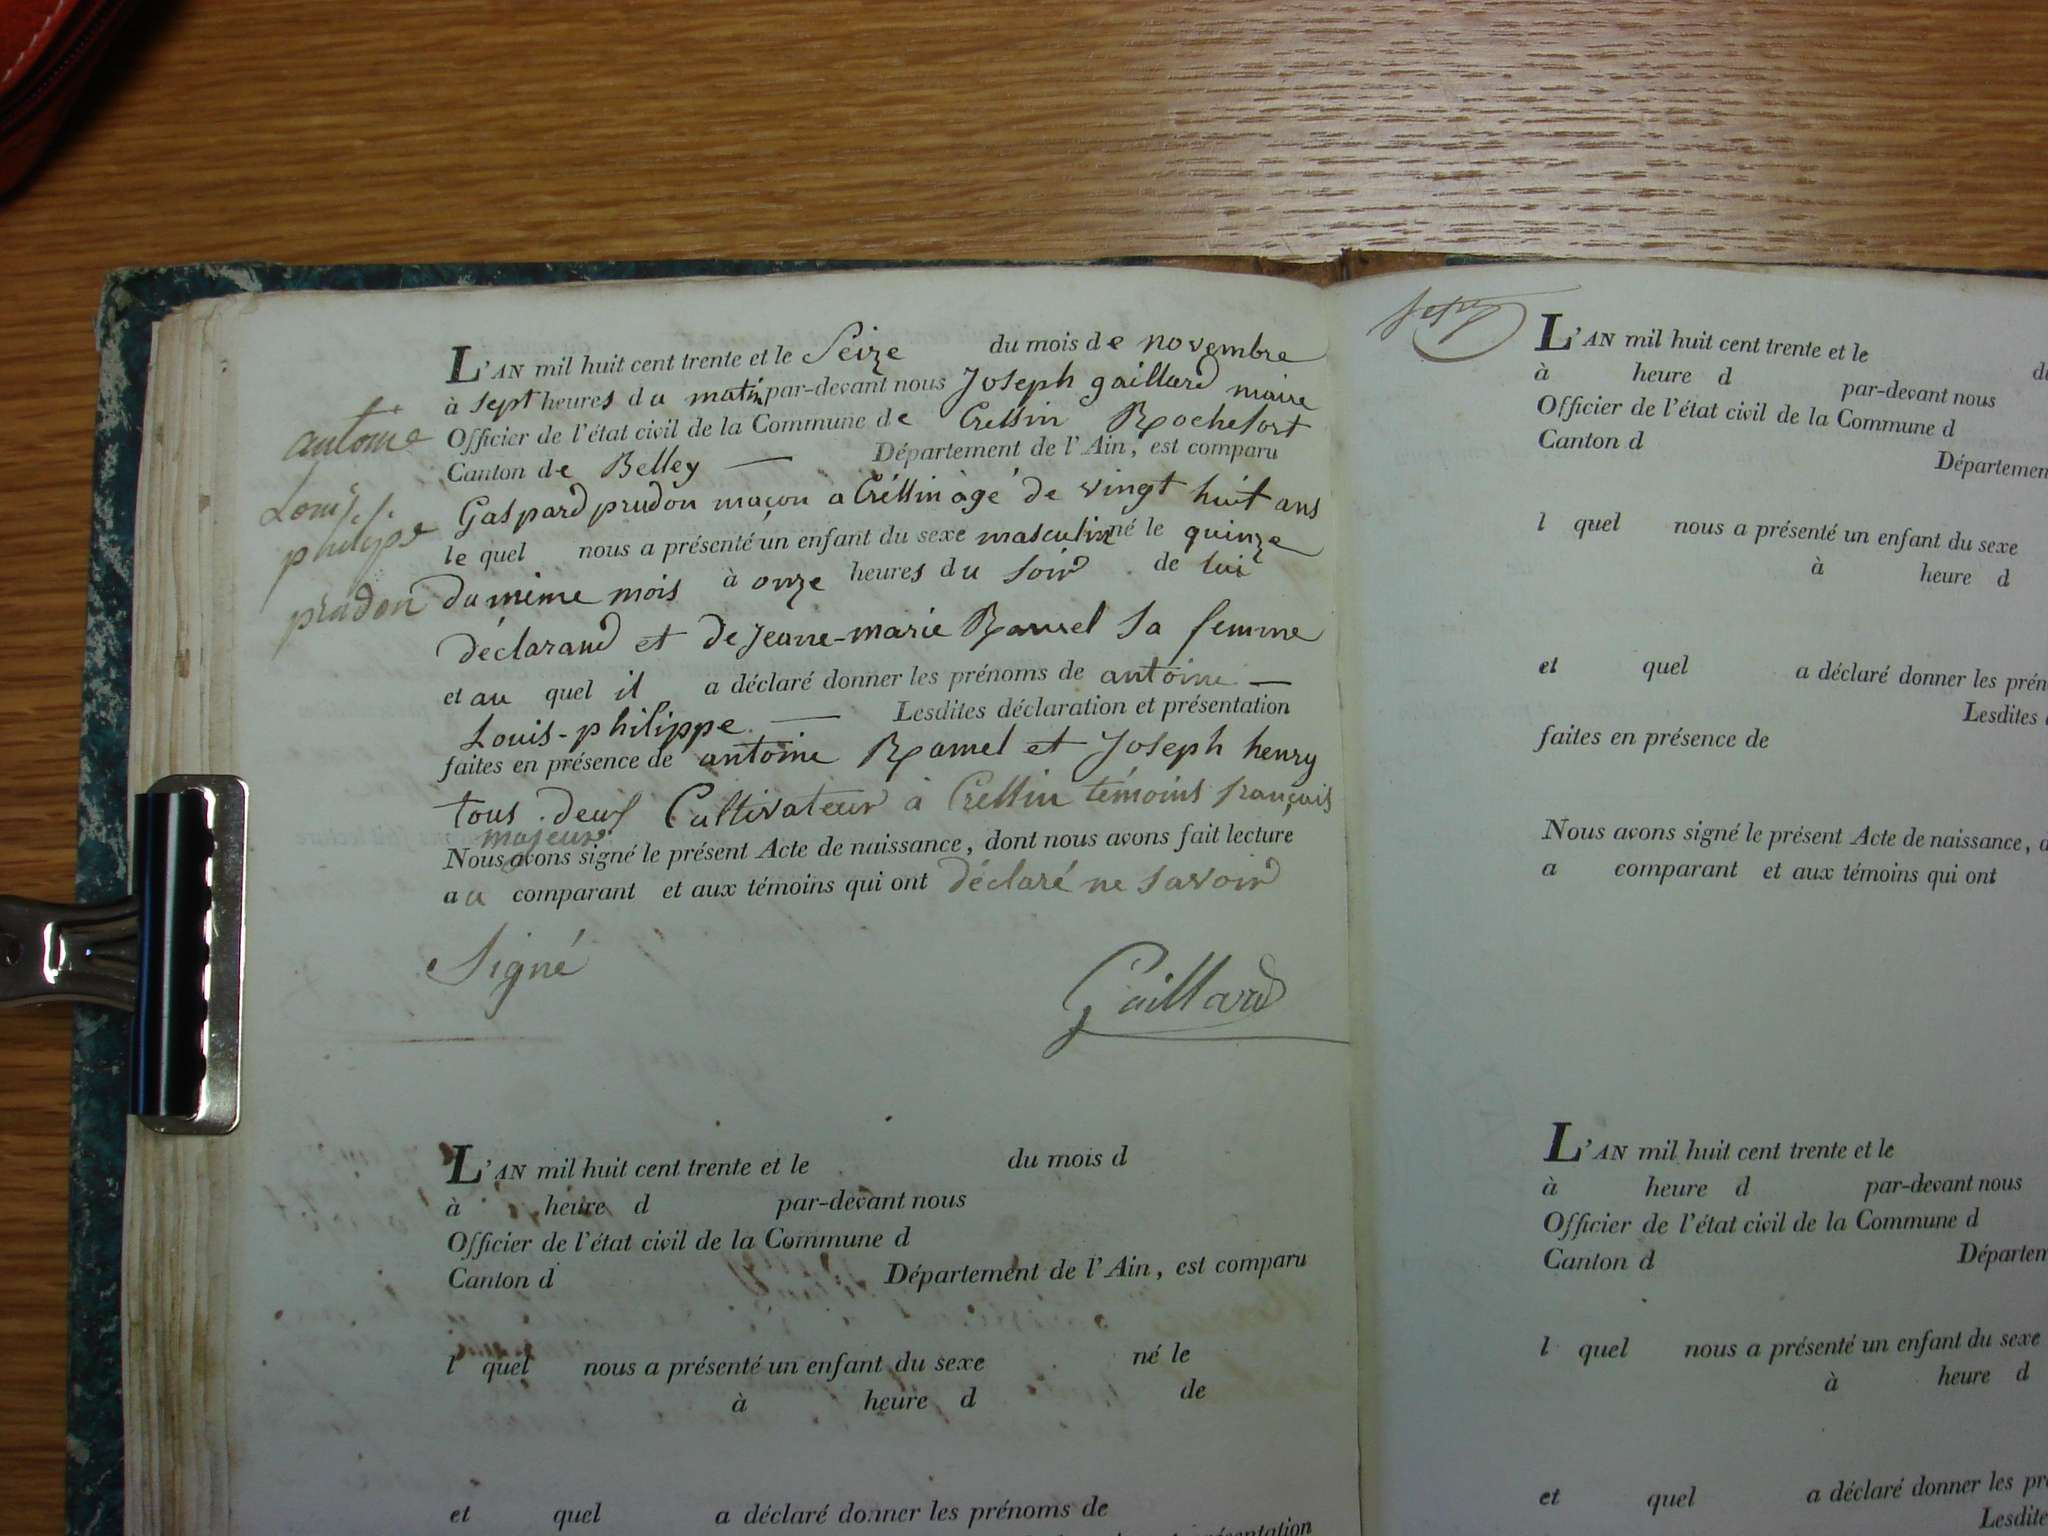 antoine
Louis
philippe
prudon
L'AN mil huit cent trente et le Seize du mois de novembre
à sept heures du matin par-devant nous Joseph gaillard maire
Officier de l'état civil de la Commune de Cressin Rochefort
Canton de Belley — Département de l'Ain, est comparu
Gaspard prudon maçon a Créssin âgé de vingt huit ans
le quel nous a présenté un enfant du sexe masculin né le quinze
du même mois à onze heures du soir de lui
déclarand et de jeane-marie Ramel sa femme
et au quel il a déclaré donner les prénoms de antoine —
Louis-philippe — Lesdites déclaration et présentation
faites en présence de antoine Ramel et Joseph henry
tous deus Cultivateur à Cressin témoins français
majeurs
Nous avons signé le présent Acte de naissance, dont nous avons fait lecture
au comparant et aux témoins qui ont déclaré ne savoir
Signé
Gaillard
L'AN mil huit cent trente et le du mois d
à heure d par-devant nous
Officier de l'état civil de la Commune d
Canton d Département de l'Ain, est comparu
l quel nous a présenté un enfant du sexe né le
à heure d de
et quel a déclaré donner les prénoms de
présentation
L'AN mil huit cent trente et le
à heure d par-devant nous
Officier de l'état civil de la Commune d
Canton d
l quel nous a présenté un enfant du sexe
à heure d
et quel a déclaré donner les
Lesdites
faites en présence de
Nous avons signé le présent Acte de naissance,
a comparant et aux témoins qui ont
L'AN mil huit cent trente et le
à heure d par-devant nous
Officier de l'état civil de la Commune d
Canton d
l quel nous a présenté un enfant du sexe
à heure d
et quel a déclaré donner les